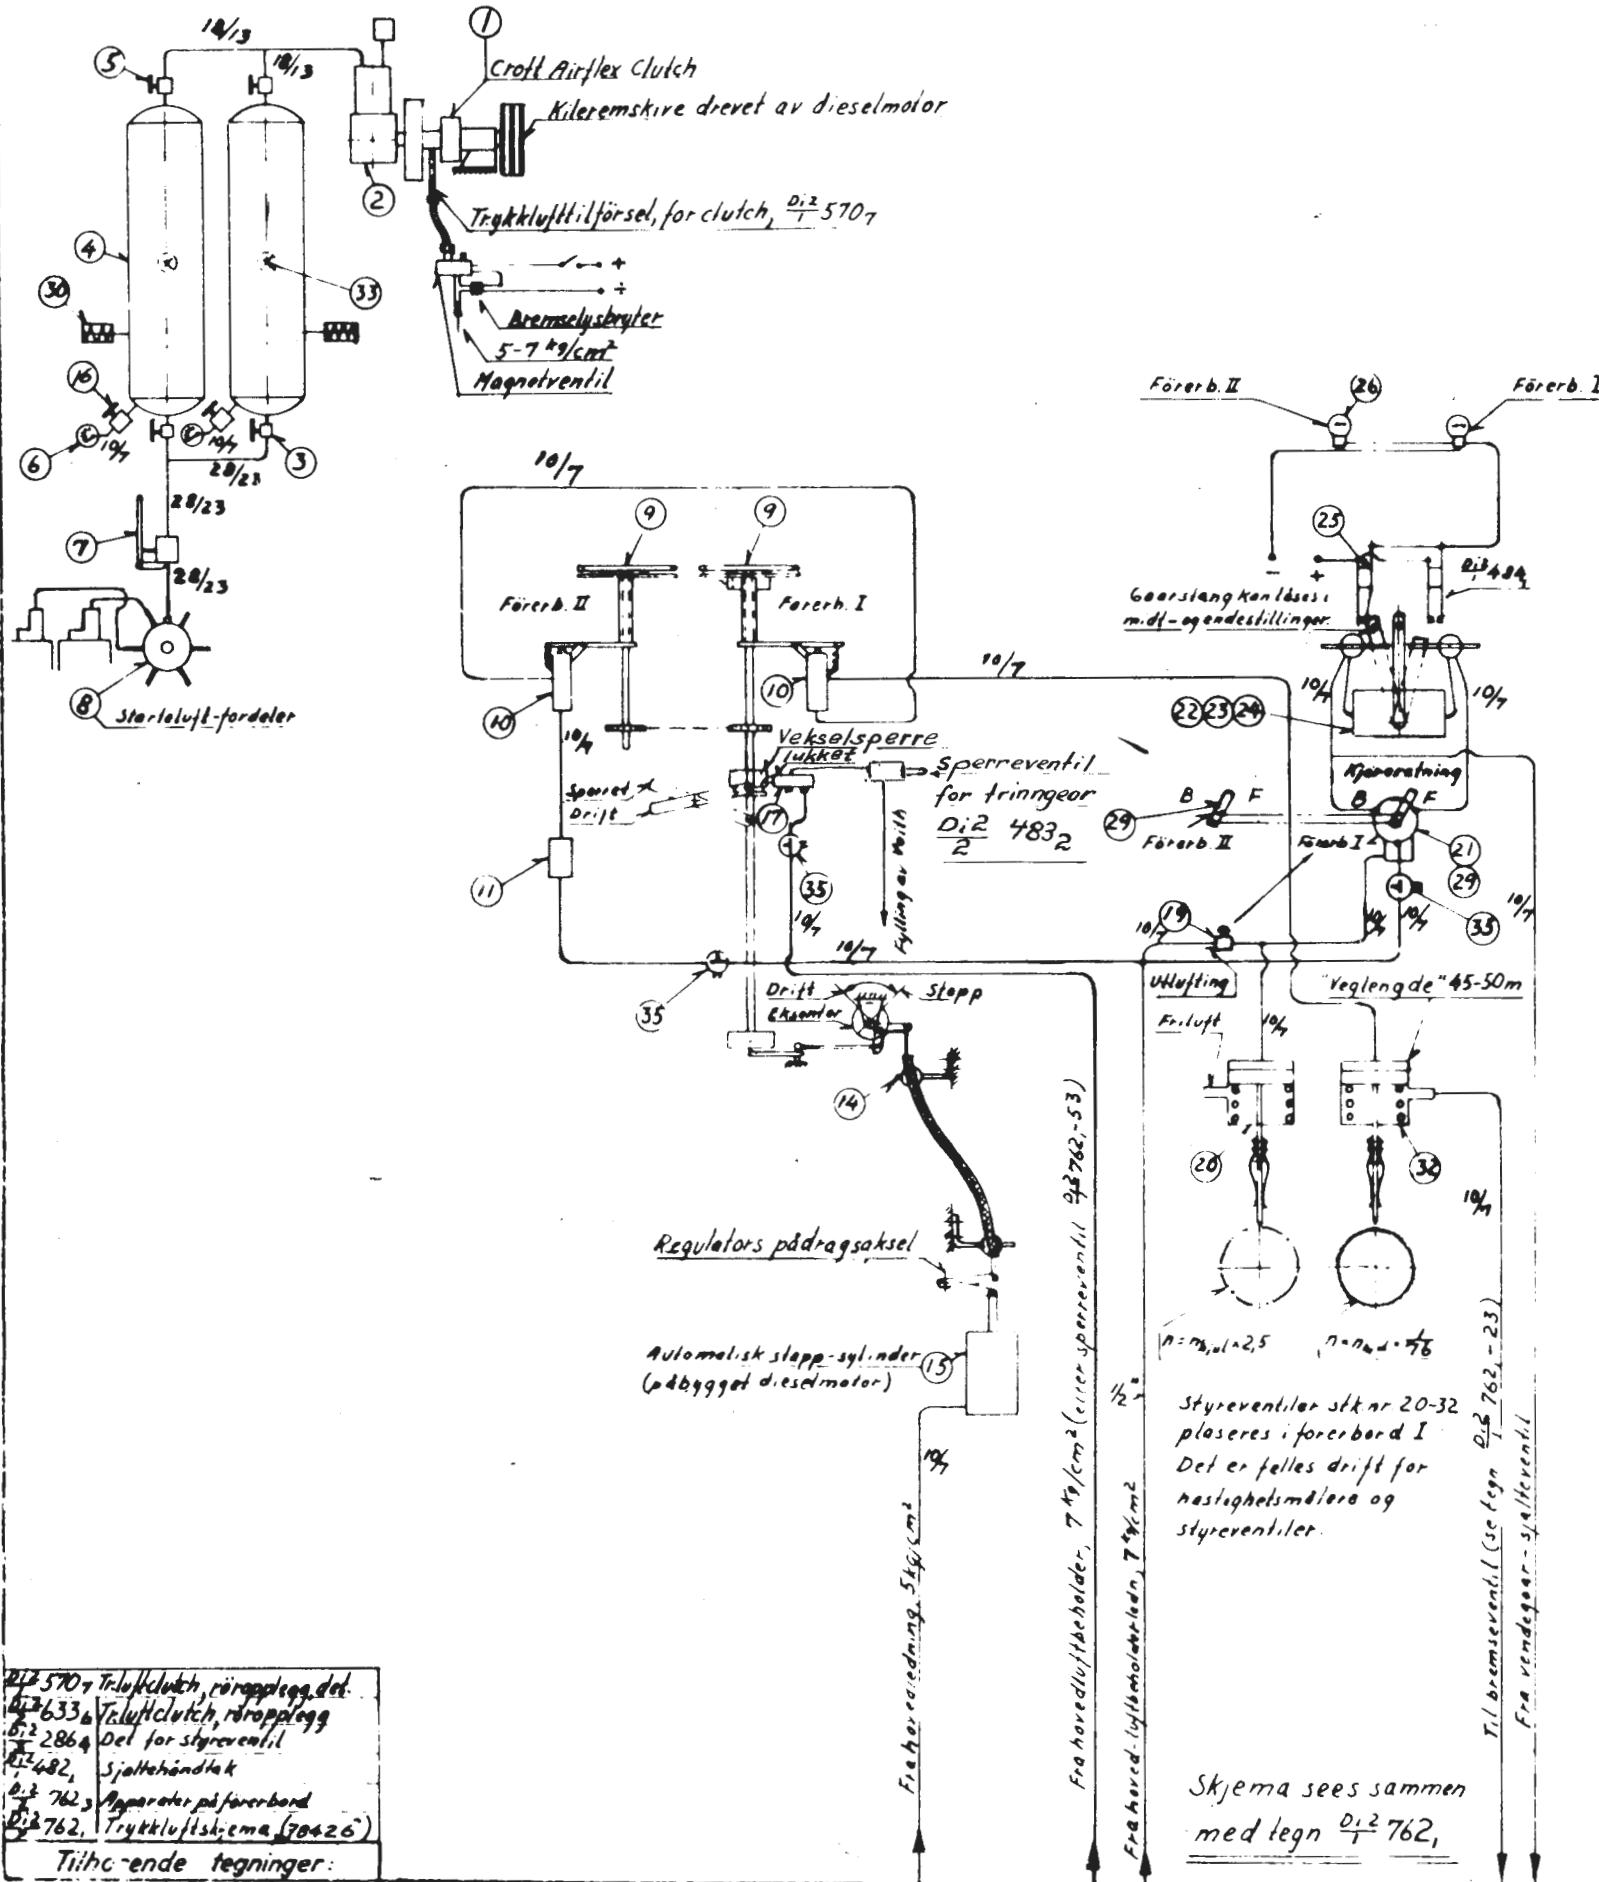 18/13
18/13
1
5
Croft Airflex Clutch
Kileremskive drevet av dieselmotor
2
Trykklufttilförsel, for clutch, Di2/1 570₇
4
30
33
+
÷
Bremselysbryter
5-7 kg/cm²
Magnetventil
16
6
10/7
10/7
3
28/23
28/23
7
28/23
8
Starteluft-fordeler
Förerb. II
26
Förerb. I
10/7
9
9
Förerb. II
Förerb. I
25
-
+
Di2/1 484₁
Gearstang kan låses i
midt- og endestillinger.
10
10
10/7
10/7
10/7
10/7
22 23 24
Vekselsperre
lukket
Sperret
Drift
17
Sperreventil
for trinngear
Di2/2 483₂
Kjøreretning
B F
B F
29
Förerb. II
Förerb. I
21
29
11
35
10/7
Fylling av Voith
19
10/7
10/7
10/7
35
10/7
10/7
35
Utlufting
"Veglengde" 45-50m
Drift
Stopp
Eksenter
Friluft
10/7
14
20
32
10/7
Regulators pådragsaksel
Automatisk stopp-sylinder
(påbygget dieselmotor)
15
10/7
1/2"
Styreventiler stk.nr 20-32
plaseres i förerbord I
Det er felles drift for
hastighetsmålere og
styreventiler.
Fra hovedledning, 5 kg/cm²
Fra hovedluftbeholder, 7 kg/cm² (eller sperreventil Di2/3 762,-53)
Fra hoved-luftbeholderledn, 7 kg/cm²
Til bremseventil (se tegn Di2/1 762,-23)
Fra vendegear-sjalteventil
Di2/1 570₇ Tr.luftclutch, röropplegg, det.
633₆ Tr.luftclutch, röropplegg
286₄ Det for styreventil
Di2/1 482₁ Sjaltehåndtak
762₃ Apparater på förerbord
762₁ Trykkluftskjema (78426)
Tilhörende tegninger:
Skjema sees sammen
med tegn Di2/1 762₁